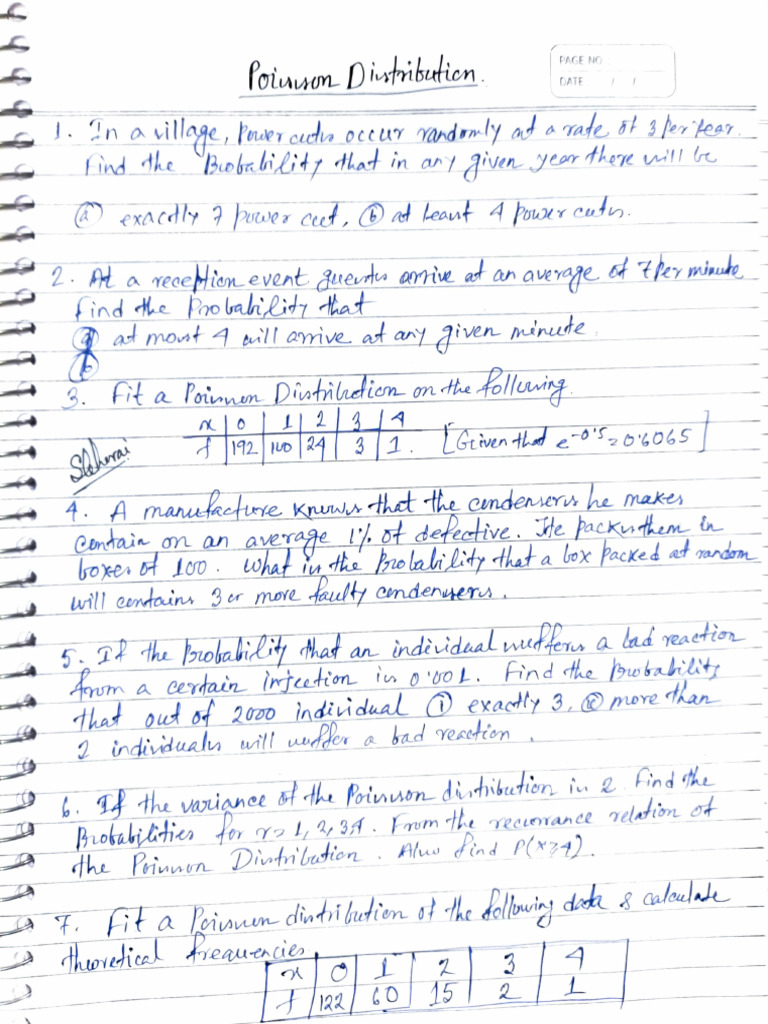 Poisson Distribution.
PAGE NO.
DATE / /
1. In a village, Power cuts occur randomly at a rate of 3 per year.
Find the Probability that in any given year there will be
(a) exactly 7 power cut, (b) at least 4 power cuts.
2. At a reception event guests arrive at an average of 7 per minute
find the Probability that
(a) at most 4 will arrive at any given minute.
(b)
3. Fit a Poisson Distribution on the following.
x | 0 | 1 | 2 | 3 | 4
f | 192 | 100 | 24 | 3 | 1. [Given that e^-0.5 = 0.6065]
4. A manufacture knows that the condensers he makes
contain on an average 1% of defective. He packs them in
boxes of 100. What is the Probability that a box packed at random
will contains 3 or more faulty condensers.
5. If the Probability that an individual suffers a bad reaction
from a certain injection is 0.001. Find the Probability
that out of 2000 individual (i) exactly 3, (ii) more than
2 individuals will suffer a bad reaction.
6. If the variance of the Poisson distribution is 2. Find the
Probabilities for r = 1, 2, 3, 4. From the recurrance relation of
the Poisson Distribution. Also find P(x≥4).
7. Fit a Poisson distribution of the following data & calculate
theoretical frequencies.
x | 0 | 1 | 2 | 3 | 4
f | 122 | 60 | 15 | 2 | 1